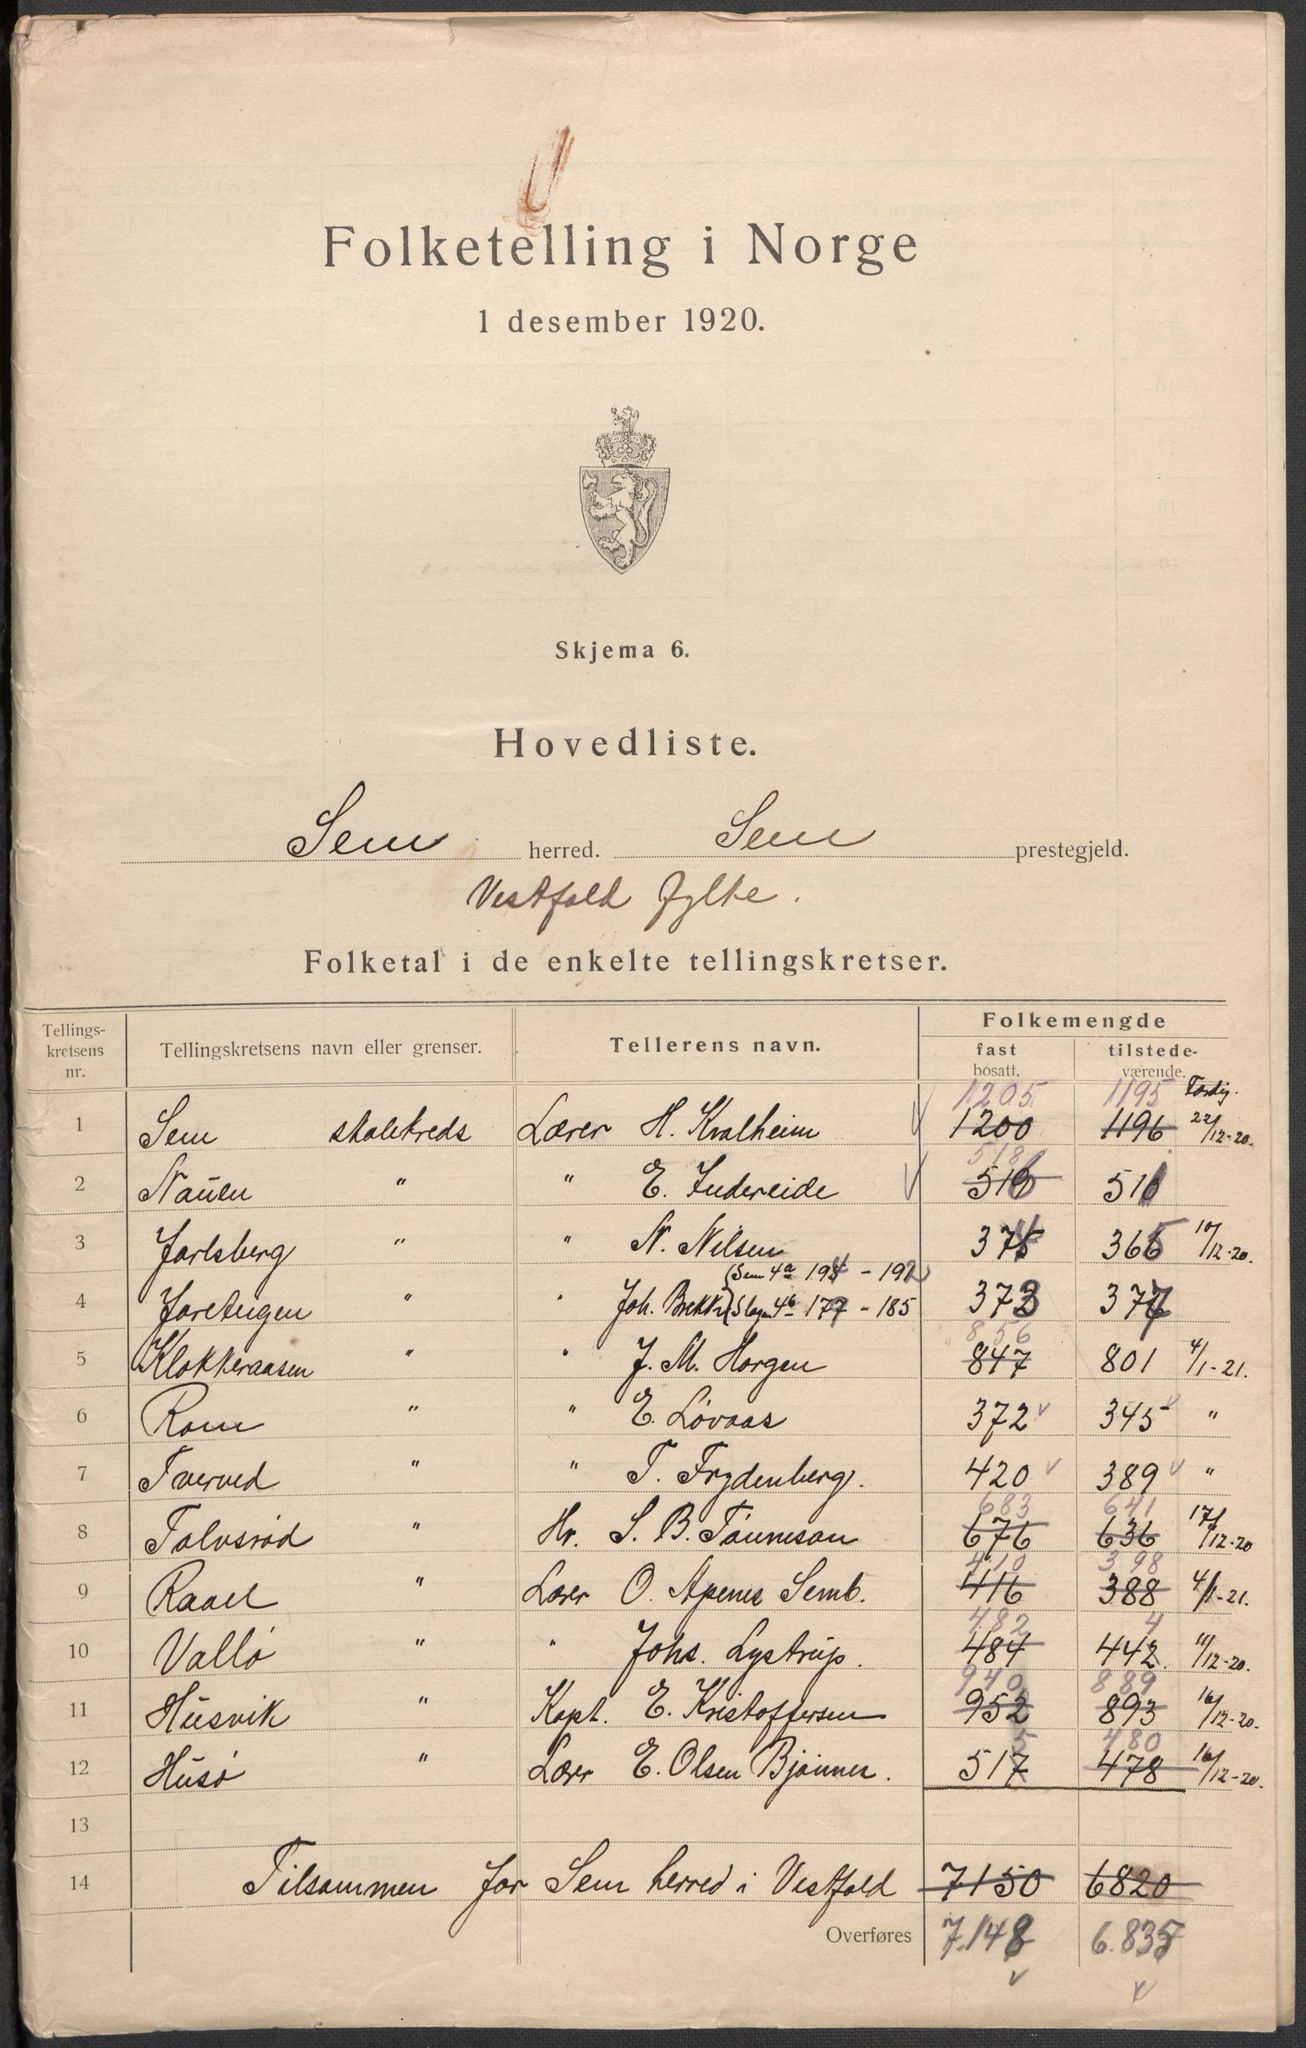 Folketelling i Norge
1 desember 1920.
Skjema 6.
Hovedliste.
Sem herred. Sem prestegjeld.
Vestfold fylke.
Folketal i de enkelte tellingskretser.
Tellings-kretsens nr. Tellingskretsens navn eller grenser. Tellerens navn. Folkemengde fast bosatt. tilstede-værende.
1205 1195
1 Sem skolekreds Lærer H. Kvalheim 1200 1196 22/12-20.
518
2 Nauen " " E. Indereide 516 511
3 Jarlsberg " " N. Nilsen 374 365 10/12-20.
(Sem 4a 194 - 192)
4 Jareteigen " " Joh. Brekke (Slagn 4b 177 - 185 373 377
856
5 Klokkeraasen " " J. M. Horgen 847 801 4/1-21.
6 Rom " " E. Løvaas 372 345 "
7 Tverved " " T. Frydenberg. 420 389 "
683 641
8 Tolvsrød " Hr. S. B. Tønneson 676 636 17/12-20
410 398
9 Rael " Lærer O. Apenes Semb. 416 388 4/1-21.
482 4
10 Vallø " " Johs. Lystrup. 484 442. 11/12-20.
940 889
11 Husvik " Kapt. E. Kristoffersen 952 893 16/12-20.
5 480
12 Husø " Lærer E. Olsen Bjønnes. 517 478 16/12-20.
13
14 Tilsammen for Sem herred i Vestfold 7150 6820
Overføres 7.148 6.835